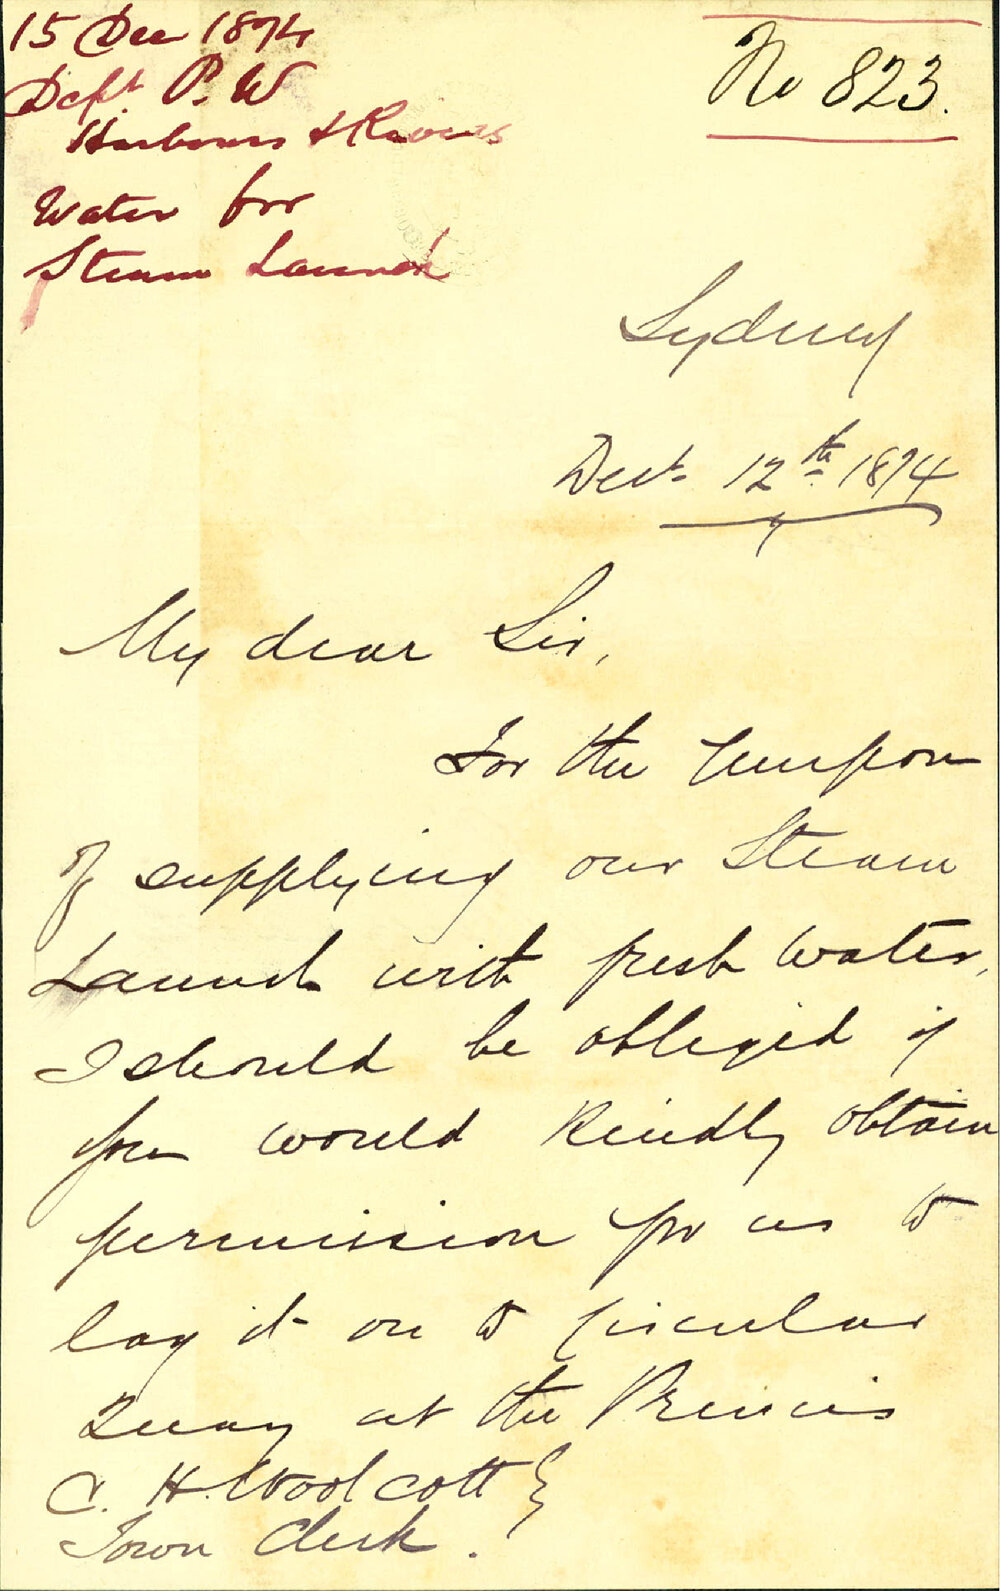 15 Dec 1874
Dept. P. W
Harbours & Rivers
Water for
Steam Launch
No 823.
Sydney
Decr 12th 1874
My dear Sir,
For the purpose
of supplying our Steam
Launch with fresh water,
I should be obliged if
you would kindly obtain
permission for us to
lay it on to Circular
Quay at the Princes
C. H. Woolcott }
Town Clerk.